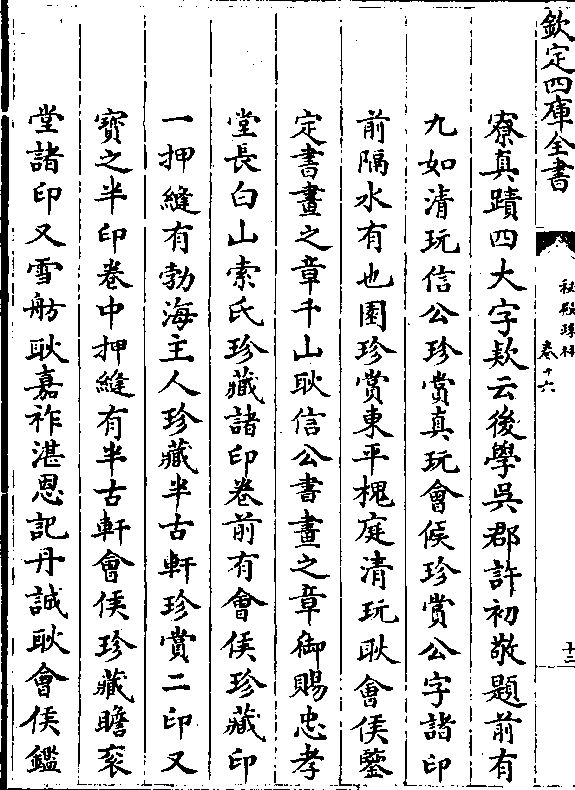 欽定四庫全書
秘殿珠林
卷十六
十二
寮真蹟四大字欵云後學吳郡許初敬題前有
九如清玩信公珍賞真玩會侯珍賞公字諸印
前隔水有也園珍賞東平槐庭清玩耿會侯鑒
定書畫之章千山耿信公書畫之章御賜忠孝
堂長白山索氏珍藏諸印卷前有會侯珍藏印
一押縫有勃海主人珍藏半古軒珍賞二印又
寳之半印卷中押縫有半古軒會侯珍藏瞻衮
堂諸印又雪舫耿嘉祚湛恩記丹誠耿會侯鑑